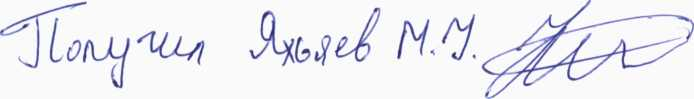 Получил Яхьяев М.У.